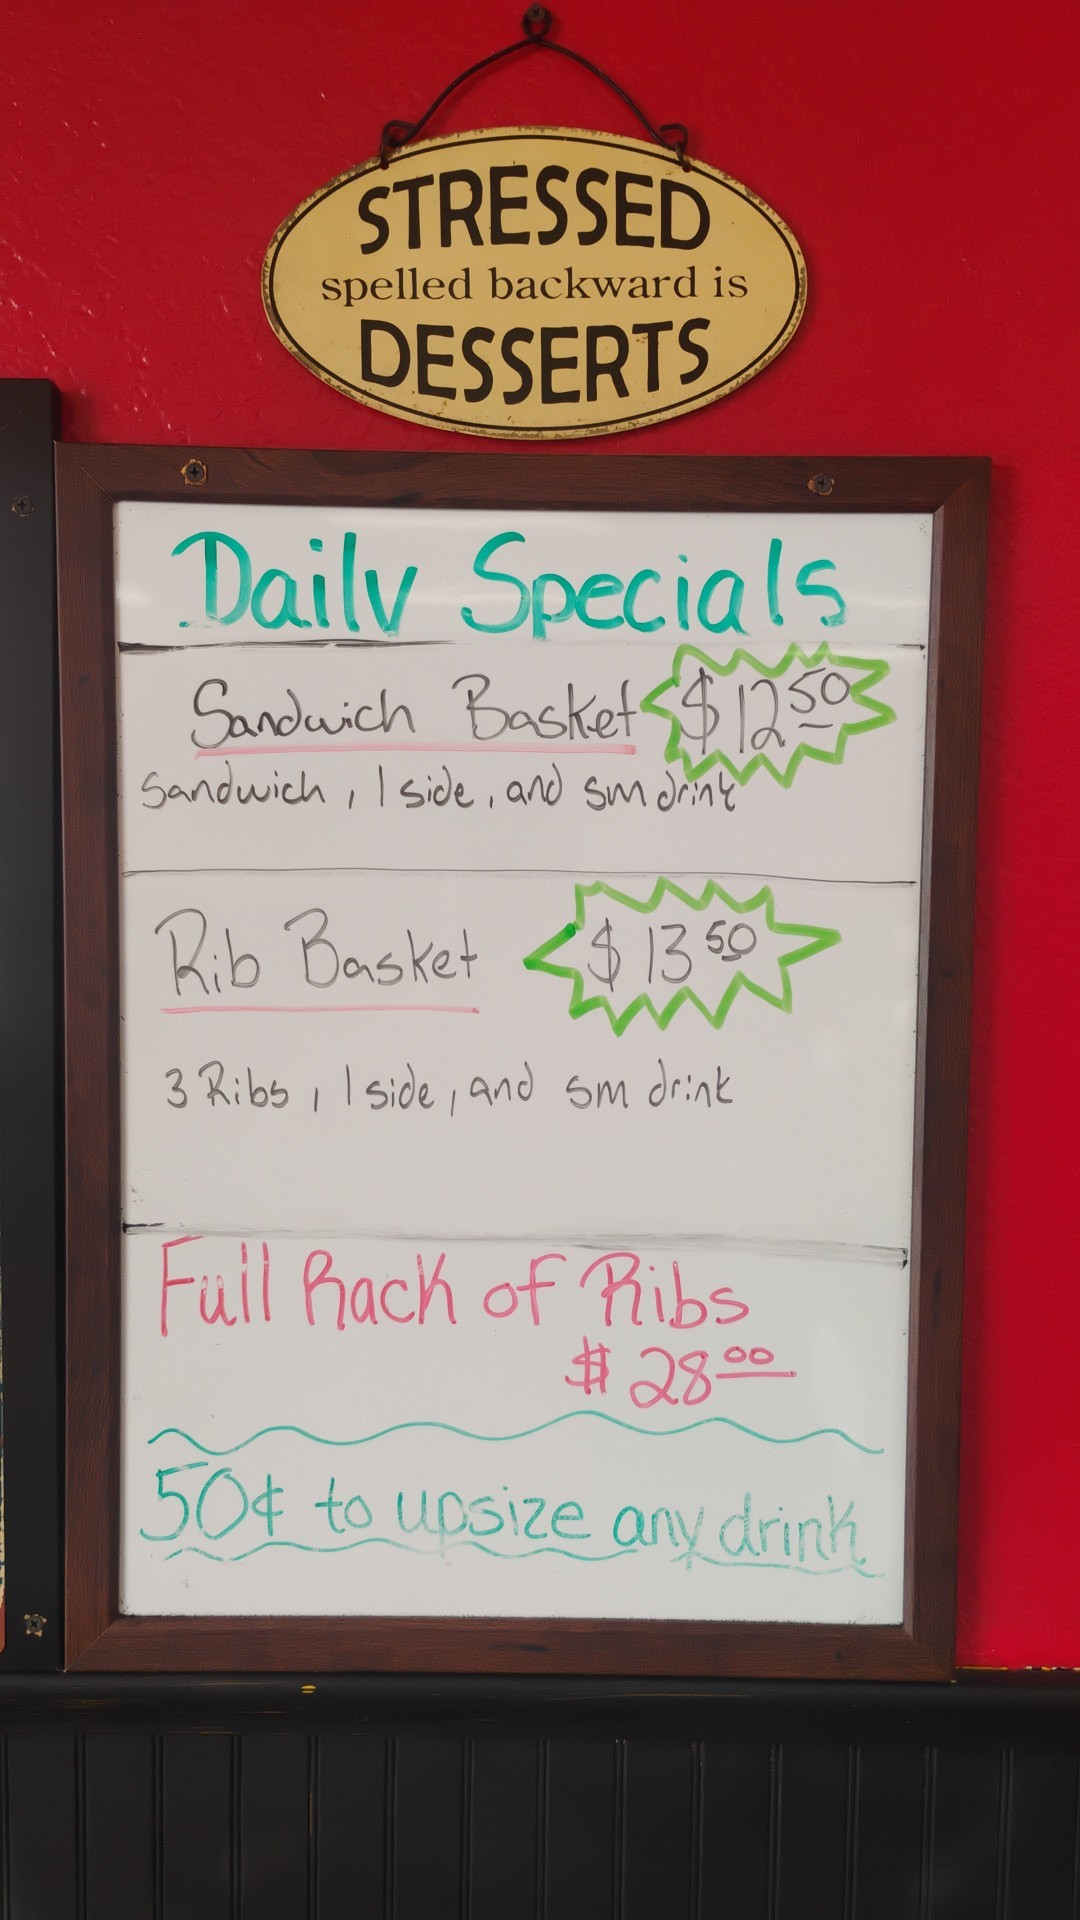 STRESSED
spelled backward is
DESSERTS
Daily Specials
Sandwich Basket $12.50
Sandwich, 1 side, and sm drink
Rib Basket $13.50
3 Ribs, 1 side, and sm drink
Full Rack of Ribs
$28.00
50¢ to upsize any drink